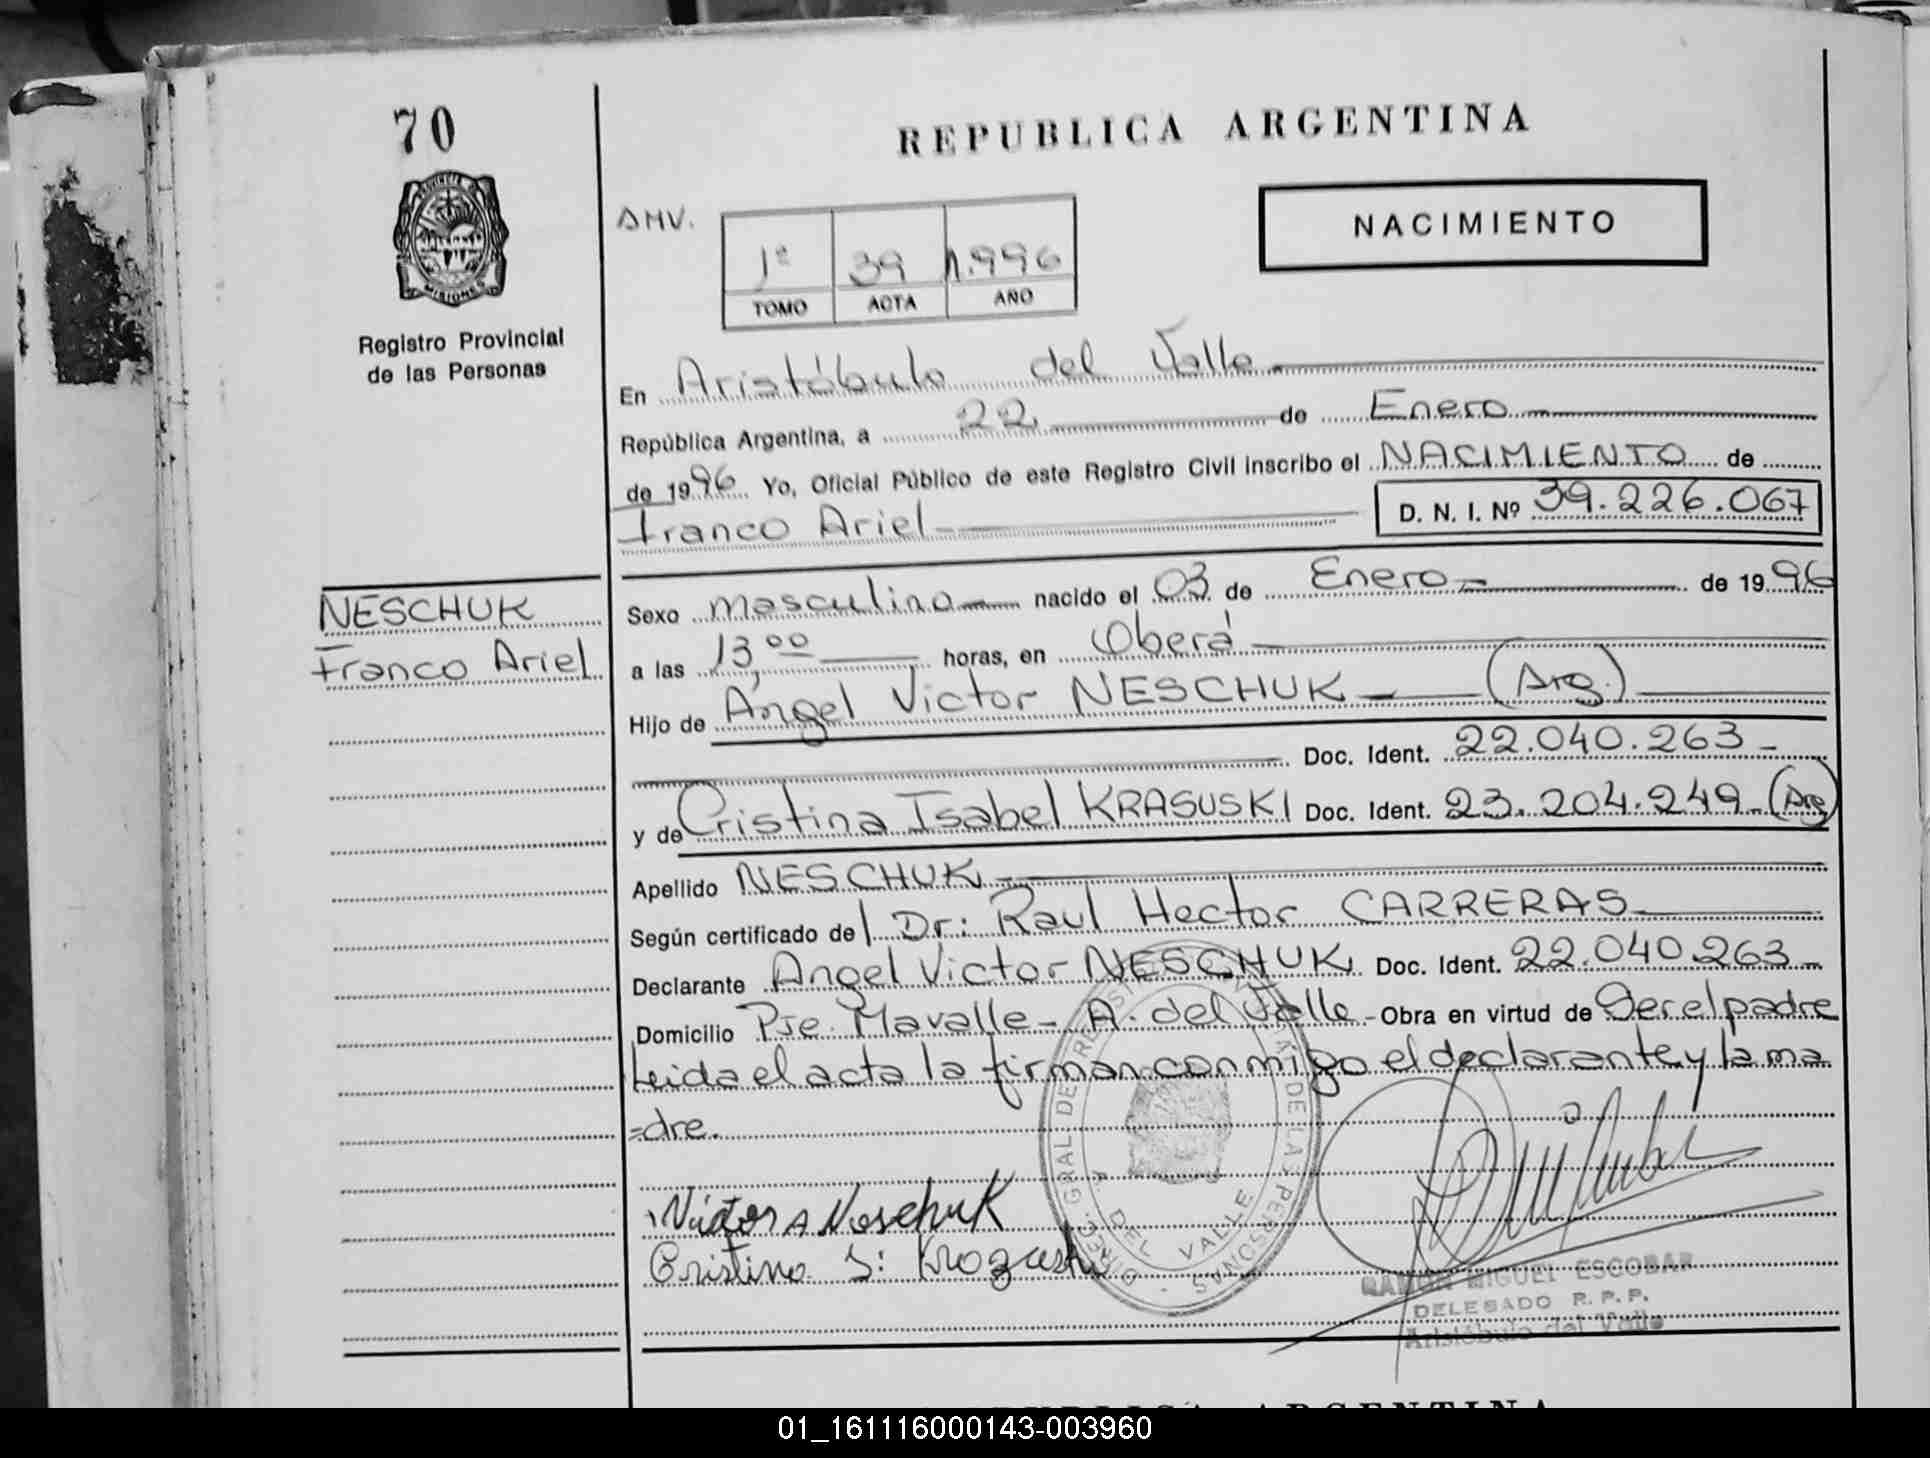 70
REPUBLICA ARGENTINA
PROVINCIA DE
MISIONES
Registro Provincial
de las Personas
AMV.
1º 39 1.996
TOMO ACTA AÑO
NACIMIENTO
En Aristóbulo del Valle
República Argentina, a 22 de Enero
de 1996 Yo, Oficial Público de este Registro Civil inscribo el NACIMIENTO de
Franco Ariel D. N. I. Nº 39.226.067
NESCHUK
Franco Ariel
Sexo masculino nacido el 03 de Enero de 1996
a las 13,00 horas, en Oberá
Hijo de Angel Victor NESCHUK (Arg.)
Doc. Ident. 22.040.263
y de Cristina Isabel KRASUSKI Doc. Ident. 23.204.249 (Arg)
Apellido NESCHUK
Según certificado del Dr: Raul Hector CARRERAS
Declarante Angel Victor NESCHUK Doc. Ident. 22.040.263
Domicilio Pje. Mavalle - A. del Valle - Obra en virtud de Ser el padre
Leida el acta la firman conmigo el declarante y la ma
=dre.
Victor A Neschuk
Cristina I:
DIREC. GRAL DE REGIST DE LAS PERSONAS
A. DEL VALLE
RAMON MIGUEL ESCOBAR
DELEGADO R. P. P.
Aristóbulo del Valle
REPUBLICA ARGENTINA
01_161116000143-003960